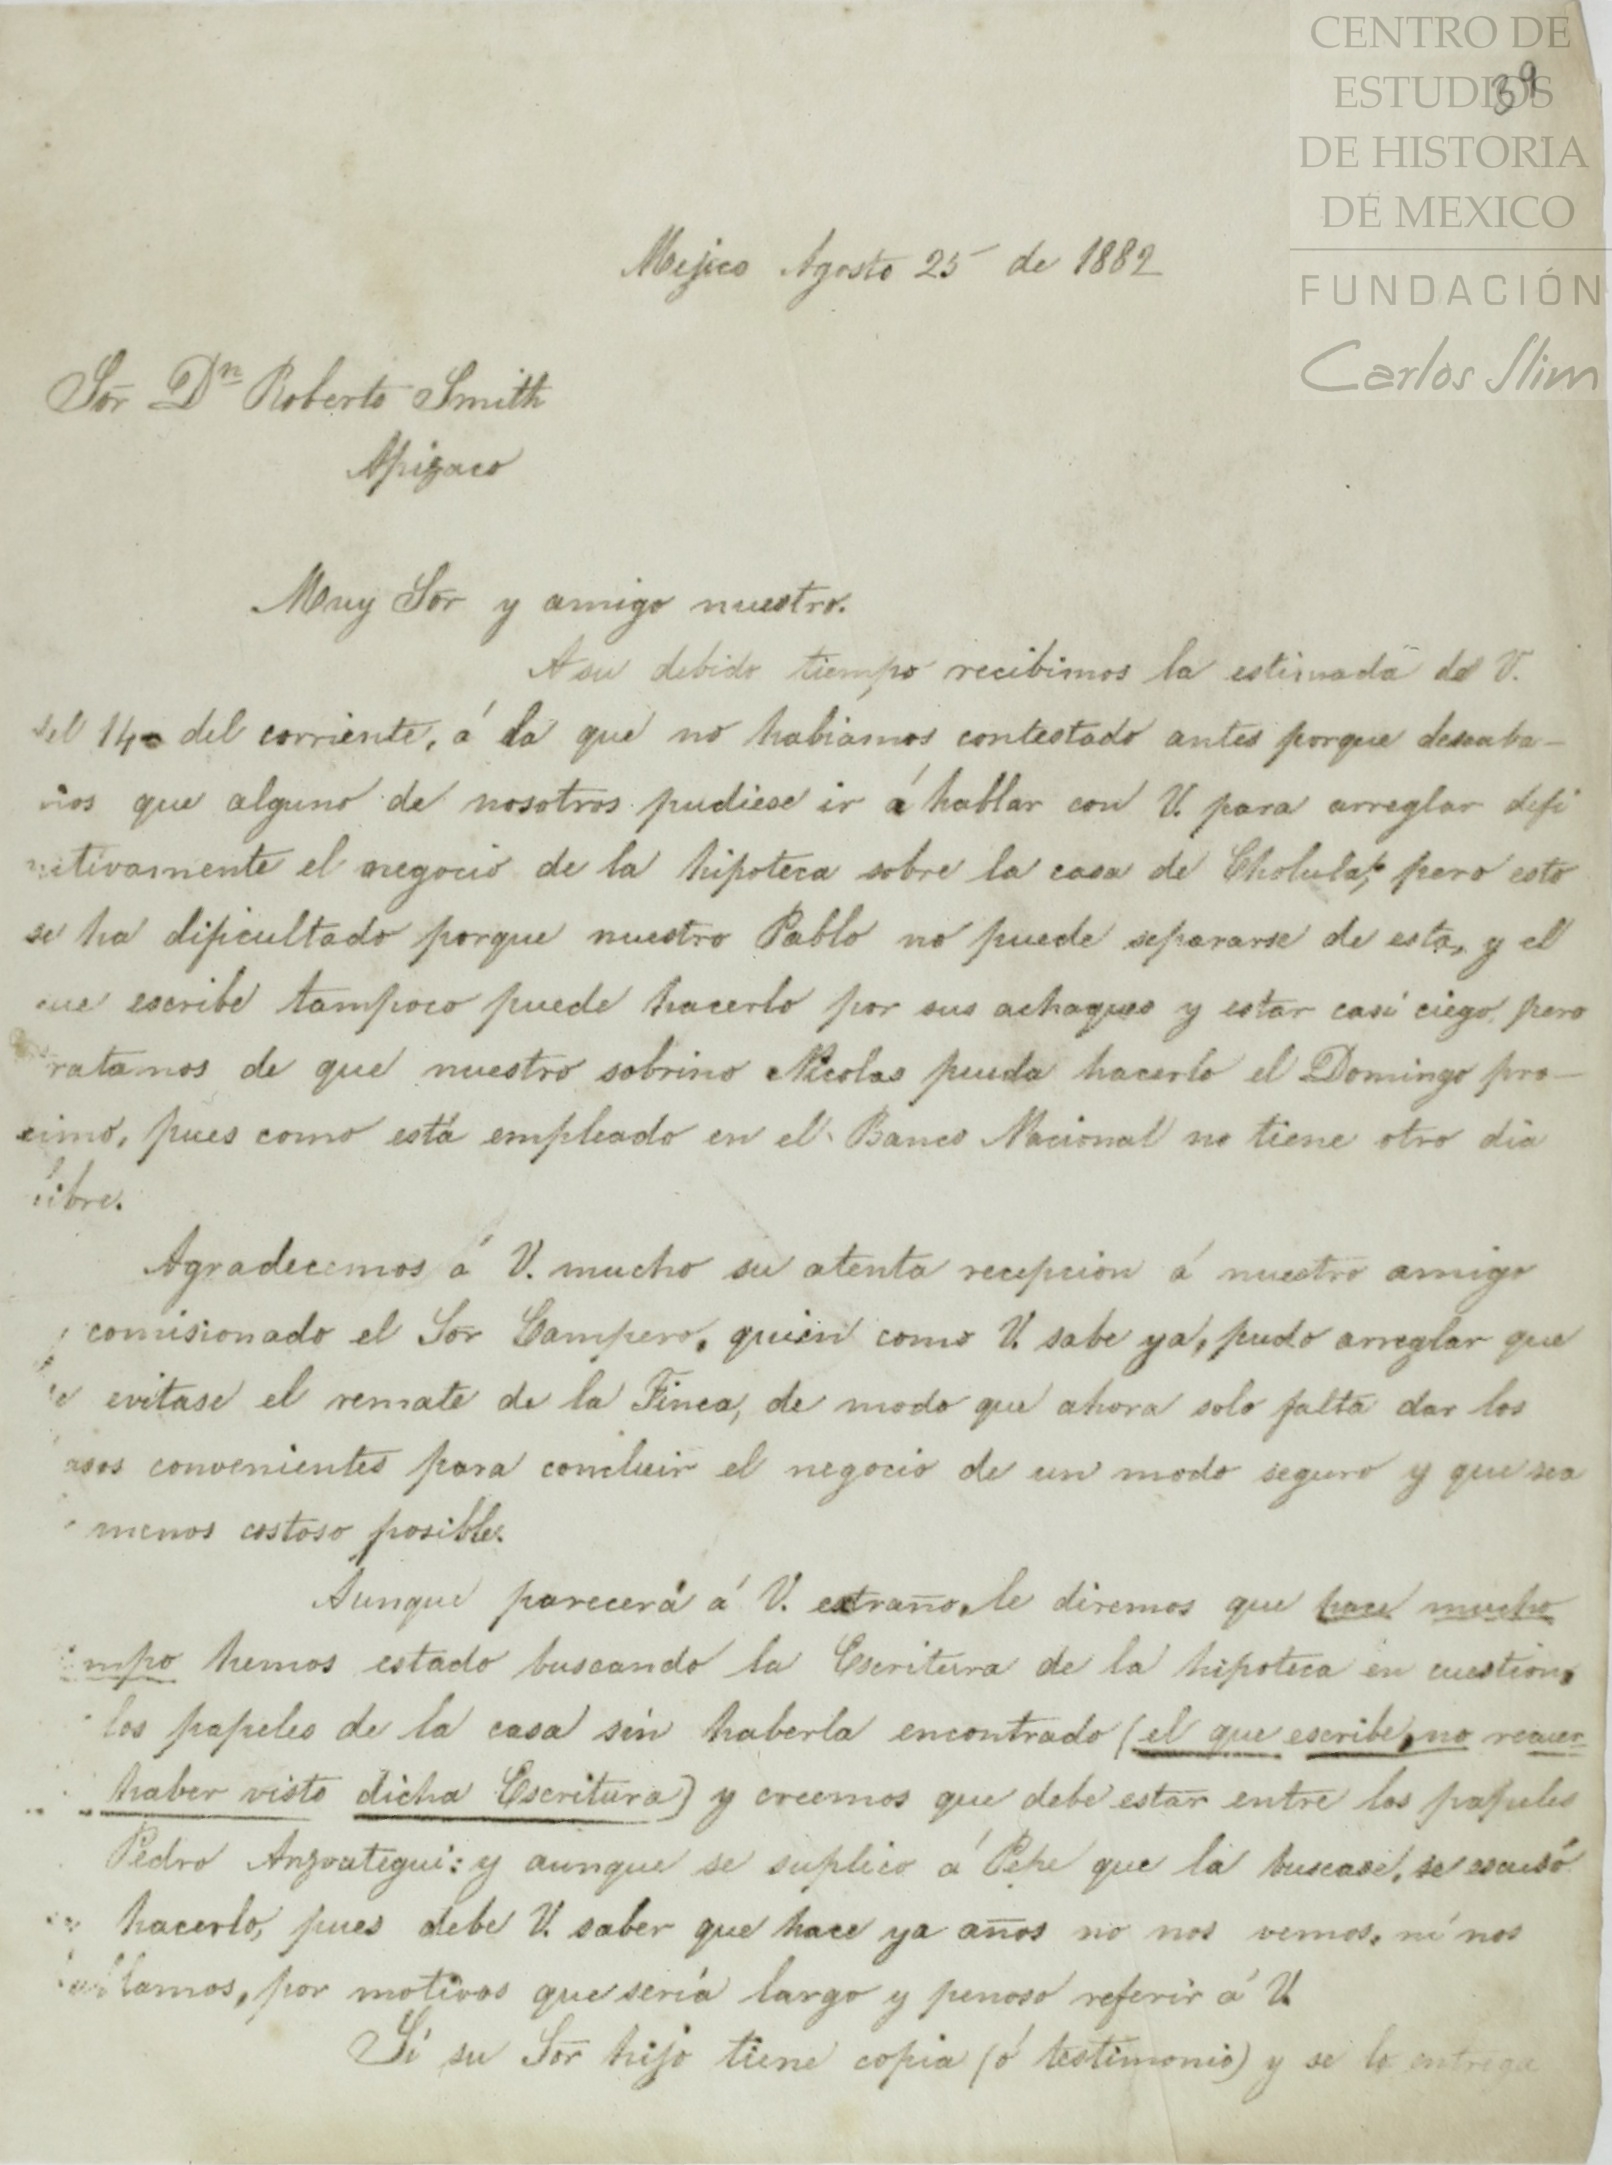 CENTRO DE
ESTUDIOS
DE HISTORIA
DE MEXICO
FUNDACIÓN
Carlos Slim
39
Mejico Agosto 25 de 1882
Sor Dn Roberto Smith
Apizaco
Muy Sor y amigo nuestro.
A su debido tiempo recibimos la estimada de V.
del 14 del corriente, á la que no habiamos contestado antes porque deseaba-
mos que alguno de nosotros pudiese ir á hablar con V. para arreglar defi
nitivamente el negocio de la hipoteca sobre la casa de Cholula, pero esto
se ha dificultado porque nuestro Pablo no puede separarse de esta, y el
que escribe tampoco puede hacerlo por sus achaques y estar casi ciego, pero
tratamos de que nuestro sobrino Nicolas pueda hacerlo el Domingo pro-
cimo, pues como está empleado en el Banco Nacional no tiene otro dia
libre.
Agradecemos á V. mucho su atenta recepcion á nuestro amigo
comisionado el Sor Campero, quien como V. sabe ya, pudo arreglar que
se evitase el remate de la Finca, de modo que ahora solo falta dar los
asos convenientes para concluir el negocio de un modo seguro y que sea
menos costoso posible.
Aunque parecerá á V. extraño, le diremos que hace mucho
mpo hemos estado buscando la Escritura de la hipoteca en cuestion,
los papeles de la casa sin haberla encontrado (el que escribe, no recuer
haber visto dicha Escritura) y creemos que debe estar entre los papeles
Pedro Anzoategui: y aunque se suplico á Pepe que la buscase, se escusó
hacerlo, pues debe V. saber que hace ya años no nos vemos, ni nos
hablamos, por motivos que sería largo y penoso referir á V.
Si su Sor hijo tiene copia (ó testimonio) y se lo entrega